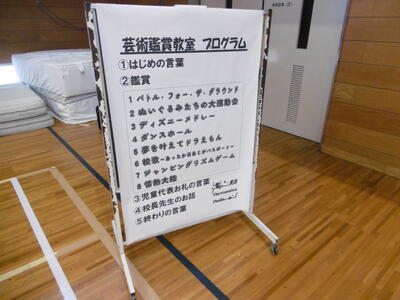 芸術鑑賞教室 プログラム
①はじめの言葉
②鑑賞
1 バトル・フォー・ザ・グラウンド
2 ぬいぐるみたちの大運動会
3 ディズニーメドレー
4 ダンスホール
5 夢を叶えてドラえもん
6 校歌～あったかはあとがパスポート～
7 ジャンピングリズムゲーム
8 情熱大陸
③児童代表お礼の言葉
④校長先生のお話
⑤終わりの言葉
Percussion